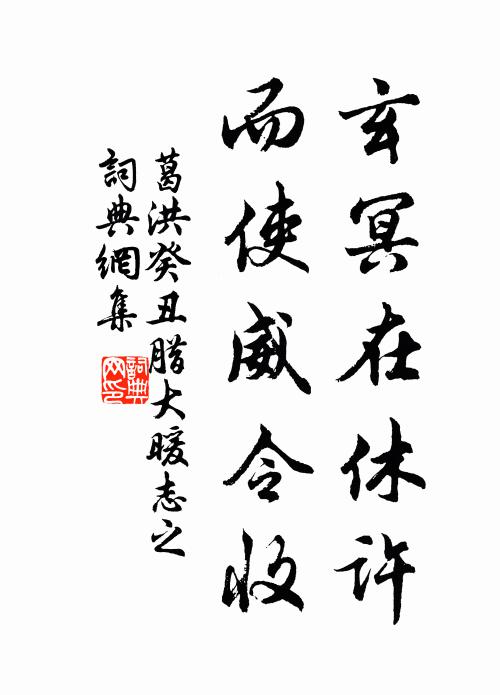 玄冥在休許
而使威令收
葛洪癸丑腊大暖志之
詞典網集
詞典
网印